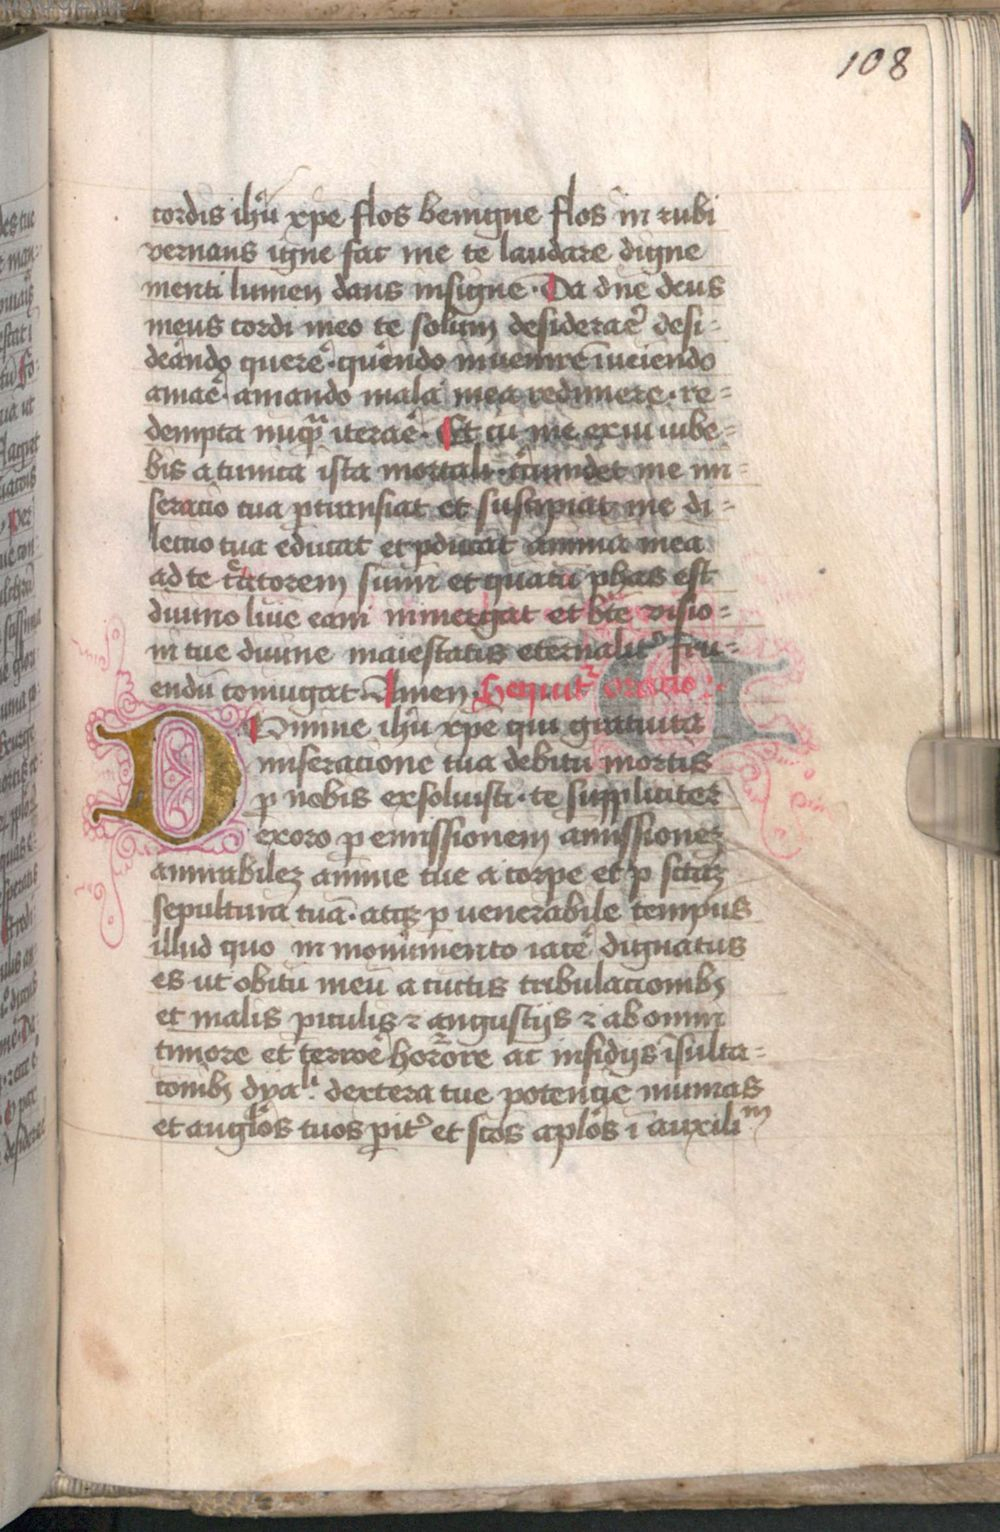 108
cordis ihu xpe flos benigne flos in rubi
vernans igne fac me te laudare digne
menti lumen dans insigne · Da dne deus
meus cordi meo te solum desiderare desi-
derando querere · querendo invenire inveniendo
amare · amando mala mea redimere · re-
dempta nuquam iterare · Et cu me exui iube-
bis a tunica ista mortali · circumdet me mi-
seracio tua ptranseat et suscipiat me di-
lectio tua educat et pducat anima mea
ad te creatorem suum et quatu phas est
divino live eam inmergat et bte visio-
ni tue divine maiestatis eternalit fru-
endu coniugat Amen · Sequit oratio
Domine ihu xpe qui gratuita
miseracione tua debitu mortis
p nobis exsolvisti · te suppliciter
exoro p emissionem amissionez
amirabilez anime tue a corpe et p sctaz
sepultura tua · atqz p venerabile tempus
illud quo in monumento iacere dignatus
es ut obitu meu a cuctis tribulacionibz
et malis piculis ⁊ angustijs ⁊ ab omni
timore et terrore horrore ac insidijs isulta-
cionibz dyali dextera tue potencie munias
et anglos tuos pit et scos aplos i auxilim